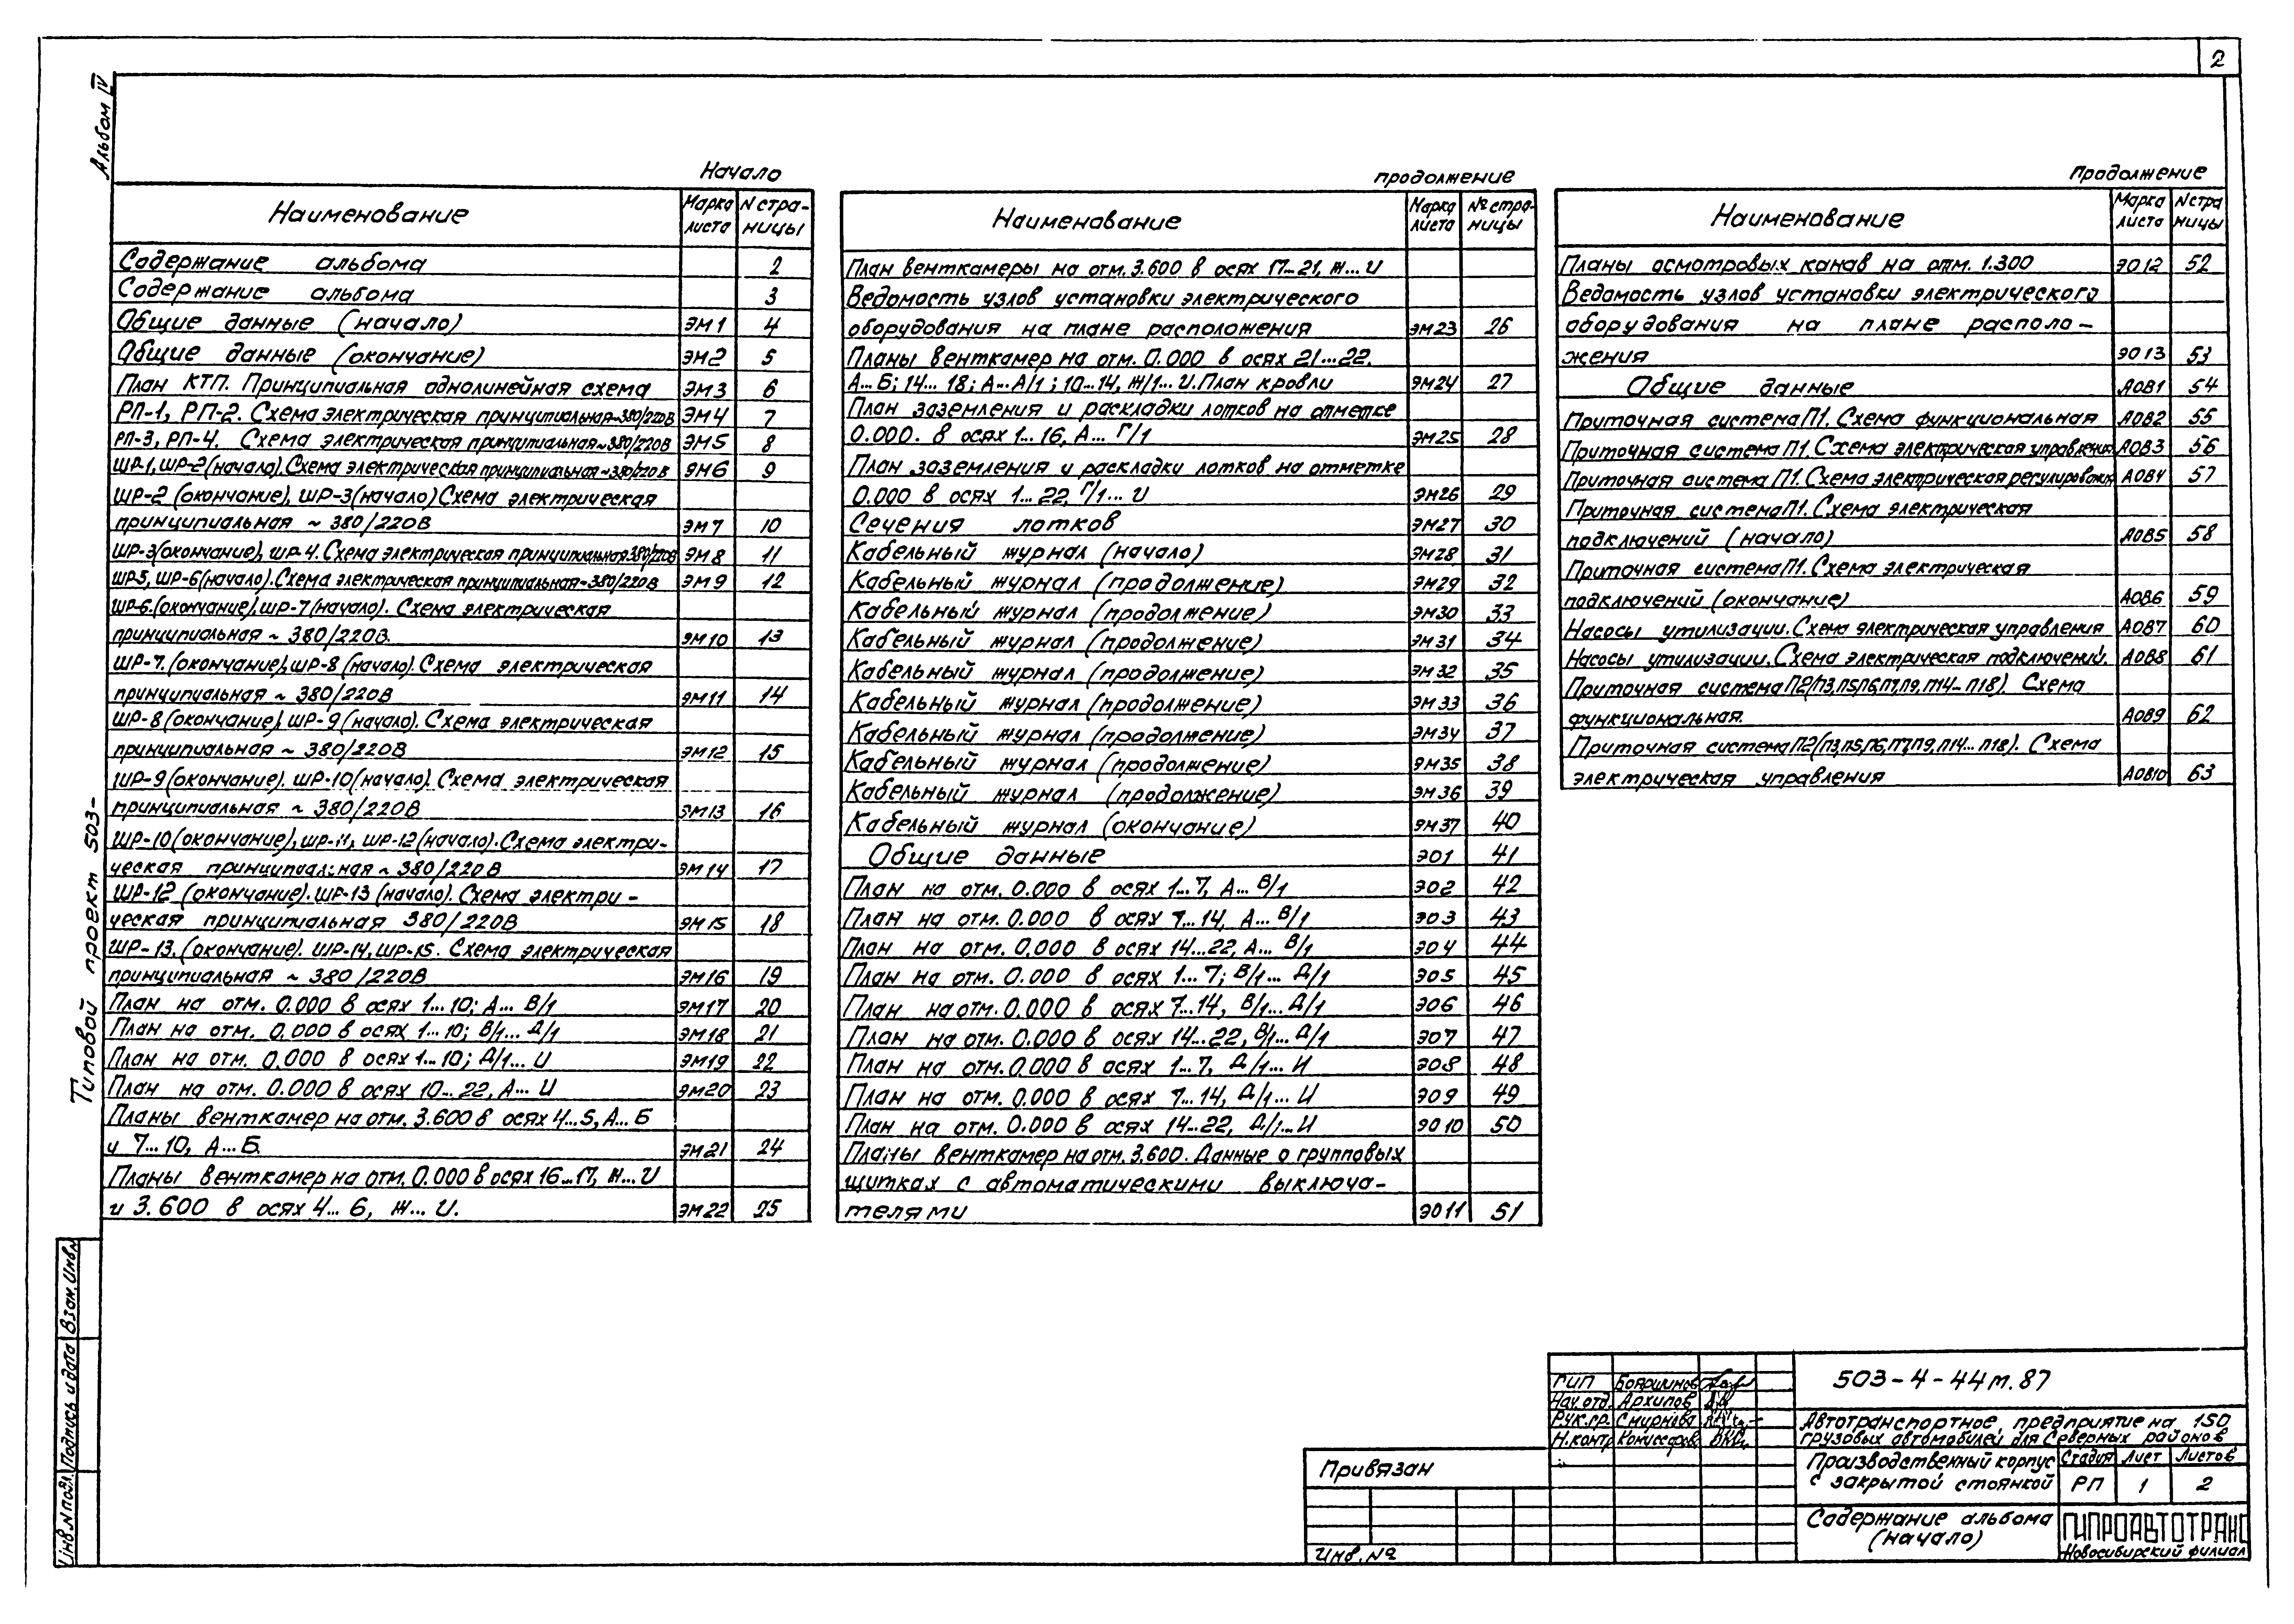 2
Альбом IV
Типовой проект 503-
Начало
Наименование Марка листа N страницы
Содержание альбома 2
Содержание альбома 3
Общие данные (начало) ЭМ1 4
Общие данные (окончание) ЭМ2 5
План КТП. Принципиальная однолинейная схема ЭМ3 6
РП-1, РП-2. Схема электрическая принципиальная~380/220В ЭМ4 7
РП-3, РП-4. Схема электрическая принципиальная~380/220В ЭМ5 8
ШР-1, ШР-2 (начало). Схема электрическая принципиальная~380/220В ЭМ6 9
ШР-2 (окончание), ШР-3(начало) Схема электрическая
принципиальная ~ 380/220В ЭМ7 10
ШР-3(окончание), ШР-4. Схема электрическая принципиальная 380/220В ЭМ8 11
ШР5, ШР-6(начало). Схема электрическая принципиальная~380/220В ЭМ9 12
ШР-6.(окончание), ШР-7(начало). Схема электрическая
принципиальная ~ 380/220В. ЭМ10 13
ШР-7. (окончание), ШР-8 (начало). Схема электрическая
принципиальная ~ 380/220В ЭМ11 14
ШР-8 (окончание), ШР-9 (начало). Схема электрическая
принципиальная ~ 380/220В ЭМ12 15
ШР-9(окончание). ШР-10(начало). Схема электрическая
принципиальная ~ 380/220В ЭМ13 16
ШР-10(окончание), ШР-11, ШР-12(начало). Схема электри-
ческая принципиальная ~ 380/220В ЭМ14 17
ШР-12 (окончание). ШР-13 (начало). Схема электри-
ческая принципиальная 380/220В ЭМ15 18
ШР-13. (окончание). ШР-14, ШР-15. Схема электрическая
принципиальная ~ 380/220В ЭМ16 19
План на отм. 0.000 в осях 1...10; А... В/1 ЭМ17 20
План на отм. 0.000 в осях 1...10; В/1... Д/1 ЭМ18 21
План на отм. 0.000 в осях 1...10; Д/1... И ЭМ19 22
План на отм. 0.000 в осях 10...22, А... И ЭМ20 23
Планы венткамер на отм. 3.600 в осях 4...5, А... Б
и 7...10, А... Б. ЭМ21 24
Планы венткамер на отм. 0.000 в осях 16...17, Ж... И
и 3.600 в осях 4... 6, Ж... И. ЭМ22 25
продолжение
Наименование Марка листа № страницы
План венткамеры на отм. 3.600 в осях 17...21, Ж... И
Ведомость узлов установки электрического
оборудования на плане расположения ЭМ23 26
Планы венткамер на отм. 0.000 в осях 21...22.
А... Б; 14... 18; А... А/1; 10...14, Ж/1... И. План кровли ЭМ24 27
План заземления и раскладки лотков на отметке
0.000. в осях 1... 16, А... Г/1 ЭМ25 28
План заземления и раскладки лотков на отметке
0.000 в осях 1... 22, Г/1... И ЭМ26 29
Сечения лотков ЭМ27 30
Кабельный журнал (начало) ЭМ28 31
Кабельный журнал (продолжение) ЭМ29 32
Кабельный журнал (продолжение) ЭМ30 33
Кабельный журнал (продолжение) ЭМ31 34
Кабельный журнал (продолжение) ЭМ32 35
Кабельный журнал (продолжение) ЭМ33 36
Кабельный журнал (продолжение) ЭМ34 37
Кабельный журнал (продолжение) ЭМ35 38
Кабельный журнал (продолжение) ЭМ36 39
Кабельный журнал (окончание) ЭМ37 40
Общие данные ЭО1 41
План на отм. 0.000 в осях 1...7, А... В/1 ЭО2 42
План на отм. 0.000 в осях 7...14, А... В/1 ЭО3 43
План на отм. 0.000 в осях 14...22, А... В/1 ЭО4 44
План на отм. 0.000 в осях 1... 7; В/1... Д/1 ЭО5 45
План на отм. 0.000 в осях 7...14, В/1... Д/1 ЭО6 46
План на отм. 0.000 в осях 14...22, В/1... Д/1 ЭО7 47
План на отм. 0.000 в осях 1...7, Д/1... И ЭО8 48
План на отм. 0.000 в осях 7...14, Д/1... И ЭО9 49
План на отм. 0.000 в осях 14...22, Д/1... И ЭО10 50
Планы венткамер на отм. 3.600. Данные о групповых
щитках с автоматическими выключа-
телями ЭО11 51
Продолжение
Наименование Марка листа N страницы
Планы осмотровых канав на отм. 1.300 ЭО12 52
Ведомость узлов установки электрического
оборудования на плане располо-
жения ЭО13 53
Общие данные АОВ1 54
Приточная система П1. Схема функциональная АОВ2 55
Приточная система П1. Схема электрическая управления АОВ3 56
Приточная система П1. Схема электрическая регулирования АОВ4 57
Приточная система П1. Схема электрическая
подключений (начало) АОВ5 58
Приточная система П1. Схема электрическая
подключений (окончание) АОВ6 59
Насосы утилизации. Схема электрическая управления АОВ7 60
Насосы утилизации. Схема электрическая подключений. АОВ8 61
Приточная система П2(П3,П5,П6,П7,П9,П14...П18). Схема
функциональная. АОВ9 62
Приточная система П2(П3,П5,П6,П7,П9,П14... П18). Схема
электрическая управления АОВ10 63
Инв.N подл. Подпись и дата Взам. инв.N
Привязан
Инв. №
ГИП Бояршинов
Нач. отд. Архипов
Рук. гр. Смирнова
Н. контр Комиссаров
503-4-44м.87
Автотранспортное предприятие на 150
грузовых автомобилей для Северных районов
Производственный корпус
с закрытой стоянкой
Стадия Лист Листов
РП 1 2
Содержание альбома
(начало)
ГИПРОАВТОТРАНС
Новосибирский филиал